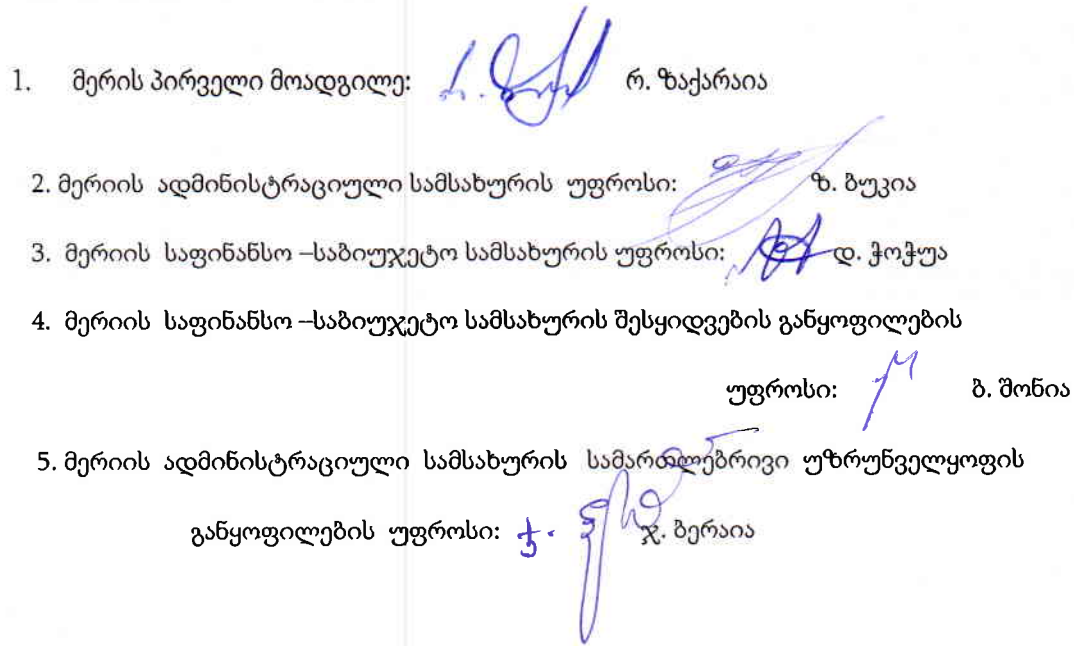 1. მერის პირველი მოადგილე: რ. ზაქარაია
2. მერიის ადმინისტრაციული სამსახურის უფროსი: ზ. ბუკია
3. მერიის საფინანსო –საბიუჯეტო სამსახურის უფროსი: დ. ჭოჭუა
4. მერიის საფინანსო –საბიუჯეტო სამსახურის შესყიდვების განყოფილების
უფროსი: ბ. შონია
5. მერიის ადმინისტრაციული სამსახურის სამართლებრივი უზრუნველყოფის
განყოფილების უფროსი: ჯ. ბერაია